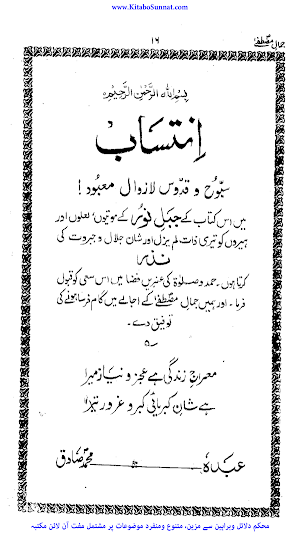 www.KitaboSunnat.com
۱۶
جمالِ مصطفےٰؐ
بِسْمِ اللهِ الرَّحْمٰنِ الرَّحِيْمِ
اِنتساب
سبّوح و قدّوس لازوال معبُود !
میں اس کتاب کے جبلِ نُور کے موتیوں، لعلوں اور
ہیروں کو تیری ذات لم یزل اور شان جلال و جبروت کی
نذر
کرتا ہوں۔ حمد و صلوٰۃ کی عنبریں فضا میں اس سعی کو قبول
فرما۔ اور ہمیں جمالِ مصطفےٰؐ کے اجالے میں گام فرسا ہونے کی
توفیق دے۔
معراجِ زندگی ہے عجز و نیاز میرا
ہے شانِ کبریائی کبر و غرور تیرا
عبدہٗ
محمد صادق
محکم دلائل وبراہین سے مزین، متنوع ومنفرد موضوعات پر مشتمل مفت آن لائن مکتبہ